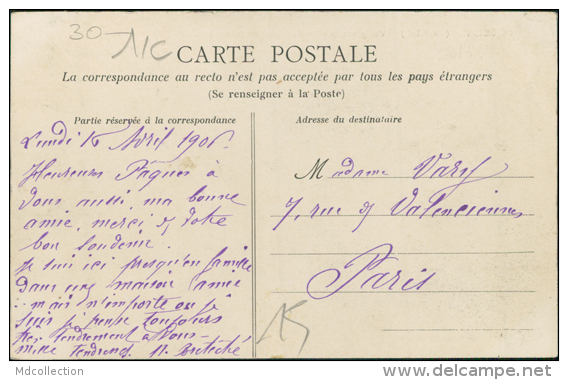 30
CARTE POSTALE
La correspondance au recto n'est pas acceptée par tous les pays étrangers
(Se renseigner à la Poste)
Partie réservée à la correspondance
Adresse du destinataire
Lundi 16 Avril 1906.
Heureuses Pâques à
vous aussi, ma bonne
amie, merci de votre
bon souvenir.
Je suis ici jusqu'en famille
Dans une maison amie
mais n'importe où je
suis je pense toujours
tendrement à vous
mille tendresses. H.
Madame Vary
7, rue de Valenciennes
Paris
Mdcollection
delcampe.net